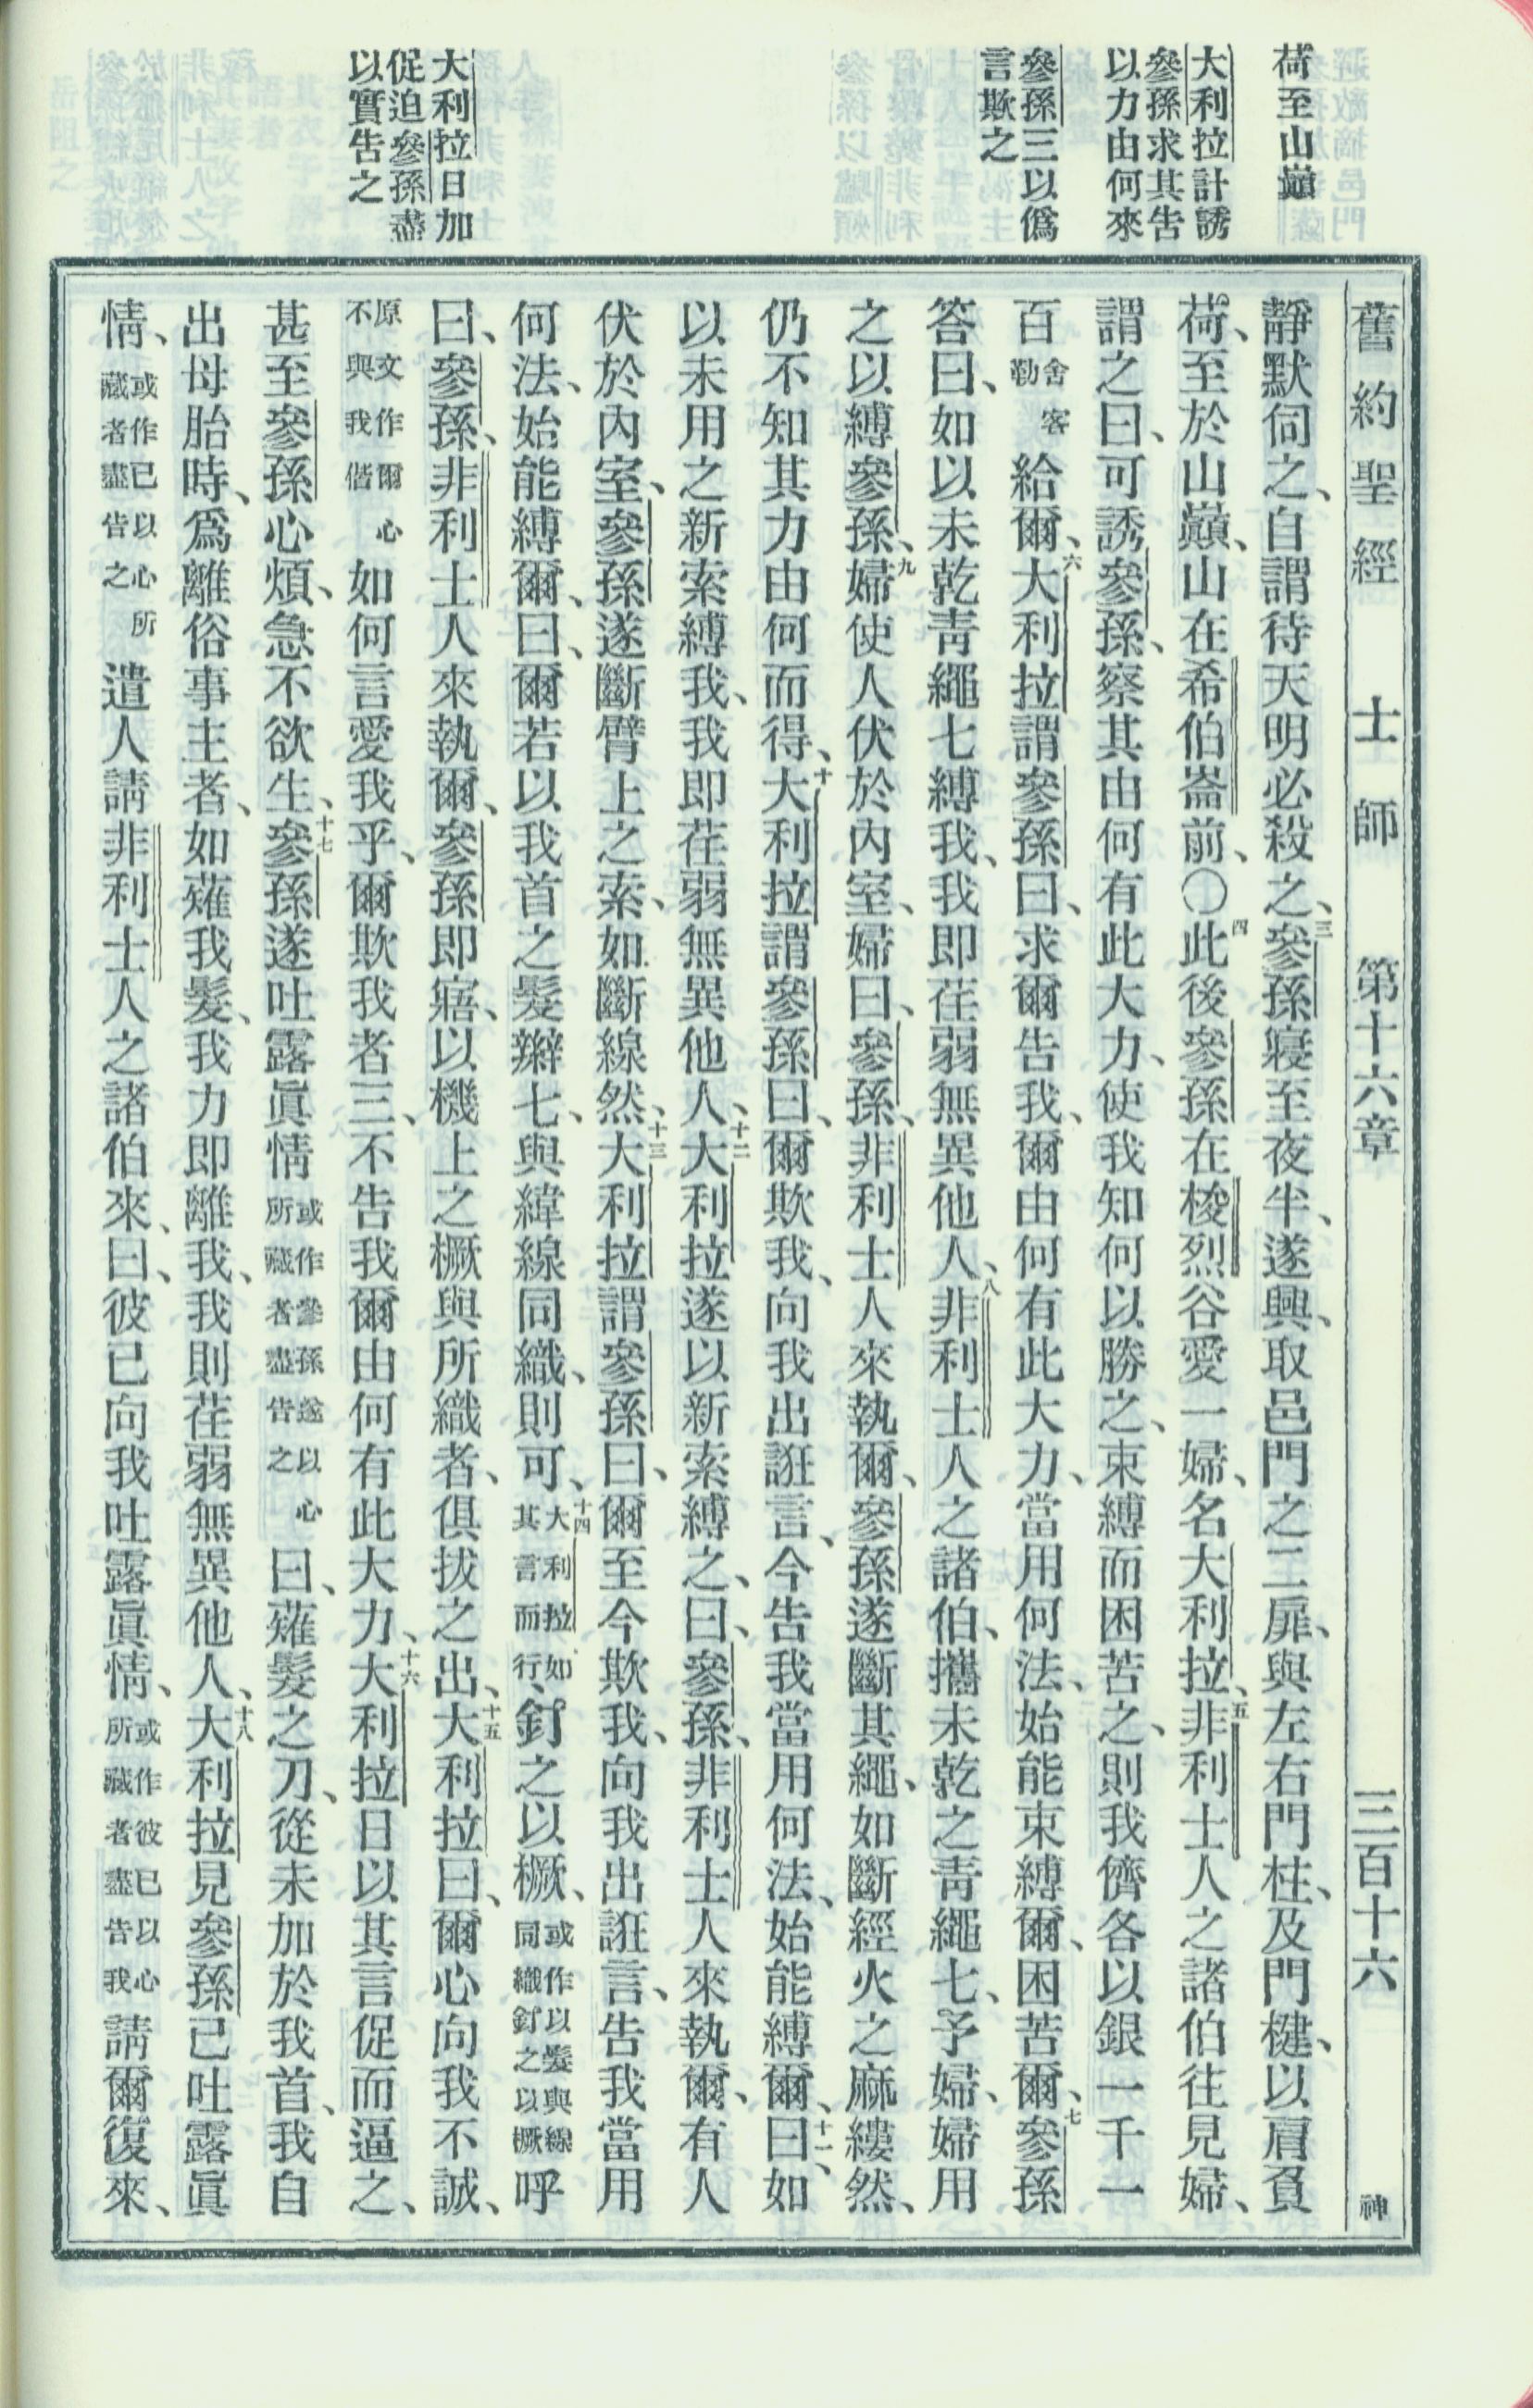 荷至山巔
大利拉計誘
參孫求其告
以力由何來
參孫三以僞
言欺之
大利拉日加
促迫參孫盡
以實告之
舊約聖經 士師 第十六章 三百十六 神
靜默伺之、自謂待天明必殺之、三參孫寢至夜半、遂興、取邑門之二扉、與左右門柱、及門楗、以肩負
荷、至於山巔、山在希伯崙前、〇四此後參孫在梭烈谷愛一婦、名大利拉、五非利士人之諸伯往見婦、
謂之曰、可誘參孫、察其由何有此大力、使我知何以勝之、束縛而困苦之、則我儕各以銀一千一
百舍客勒給爾、六大利拉謂參孫曰、求爾告我、爾由何有此大力、當用何法、始能束縛爾、困苦爾、七參孫
答曰、如以未乾靑繩七縛我、我即荏弱無異他人、八非利士人之諸伯、攜未乾之靑繩七、予婦、婦用
之以縛參孫、九婦使人伏於內室、婦曰、參孫、非利士人來執爾、參孫遂斷其繩、如斷經火之麻縷然、
仍不知其力由何而得、十大利拉謂參孫曰、爾欺我、向我出誑言、今告我當用何法、始能縛爾、十一曰、如
以未用之新索縛我、我即荏弱無異他人、十二大利拉遂以新索縛之、曰、參孫、非利士人來執爾、有人
伏於內室、參孫遂斷臂上之索、如斷線然、十三大利拉謂參孫曰、爾至今欺我、向我出誑言、告我當用
何法、始能縛爾、曰、爾若以我首之髮辮七、與緯線同織、則可、十四大利拉如其言而行、釘之以橛、或作以髮與線同織釘之以橛呼
曰、參孫、非利士人來執爾、參孫即寤、以機上之橛與所織者、俱拔之出、十五大利拉曰、爾心向我不誠、
原文作爾心不與我偕如何言愛我乎、爾欺我者三、不告我爾由何有此大力、十六大利拉日以其言促而逼之、
甚至參孫心煩、急不欲生、十七參孫遂吐露眞情或作參孫遂以心所藏者盡告之曰、薙髮之刀、從未加於我首、我自
出母胎時、爲離俗事主者、如薙我髮、我力即離我、我則荏弱無異他人、十八大利拉見參孫已吐露眞
情、或作已以心所藏者盡告之遣人請非利士人之諸伯來、曰、彼已向我吐露眞情、或作彼已以心所藏者盡告我請爾復來、